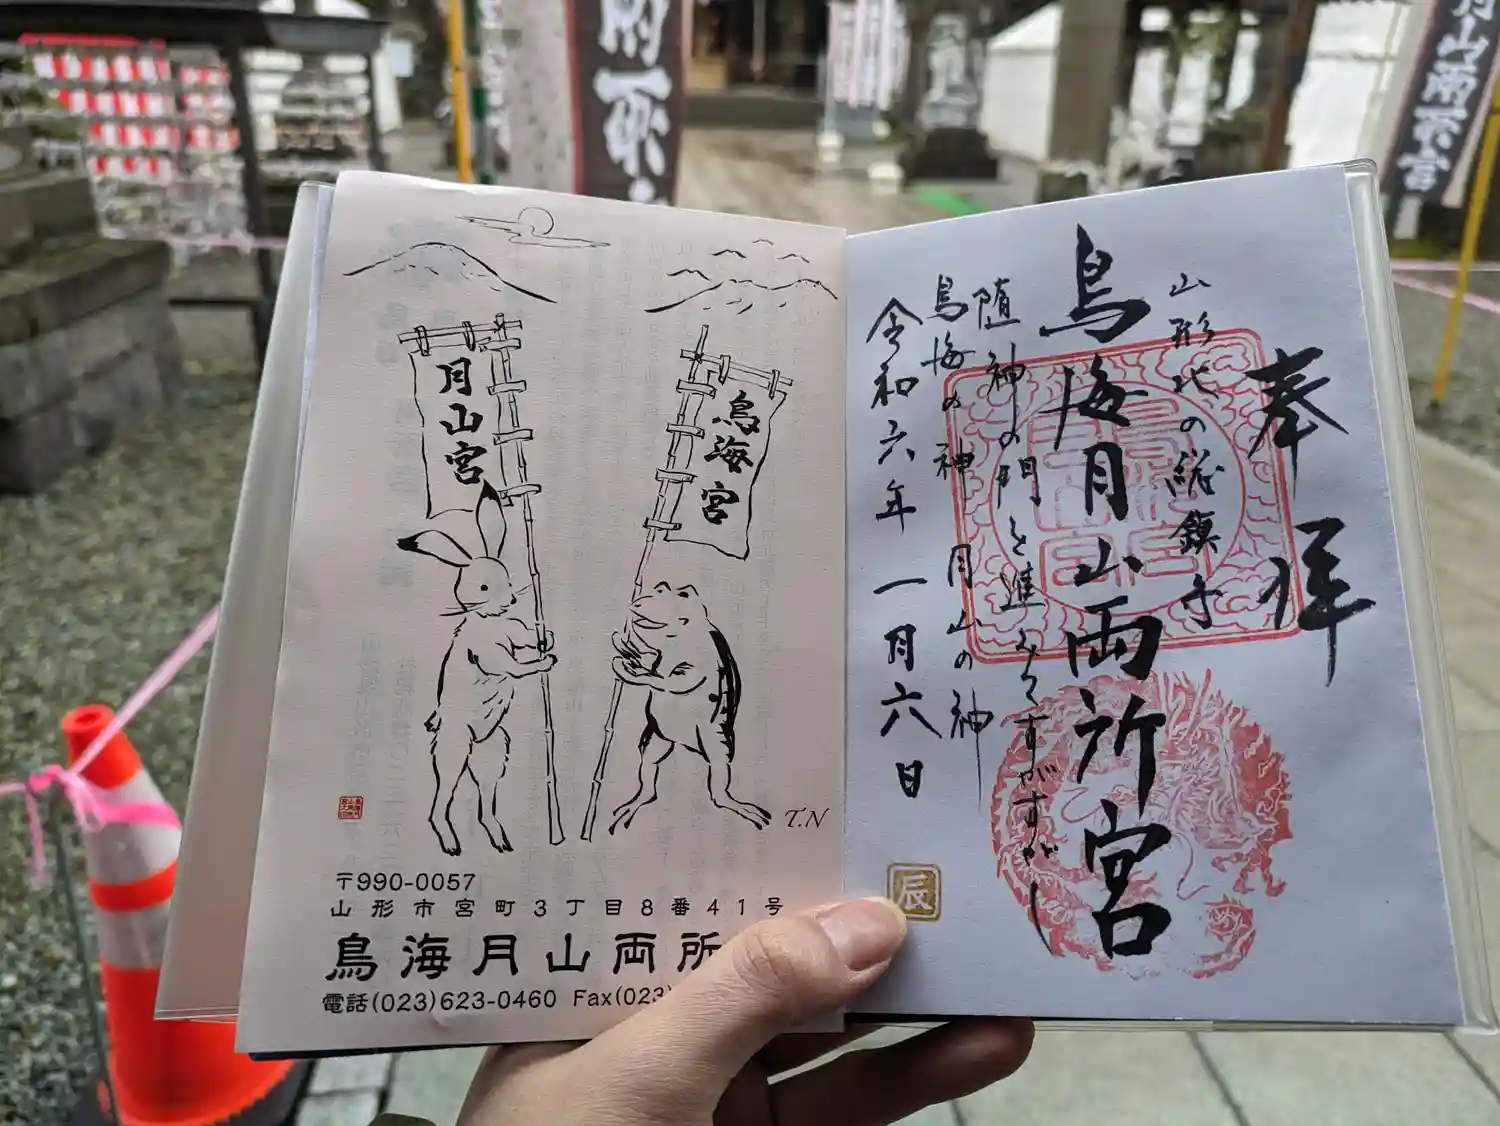 奉拝
山形北の総鎮守
鳥海月山両所宮
随神の門と進みてすがすがし
鳥海の神 月山の神
令和六年一月六日
辰
月山宮
鳥海宮
T.N
〒990-0057
山形市宮町3丁目8番41号
鳥海月山両所
電話(023)623-0460 Fax(023)
月山両所宮